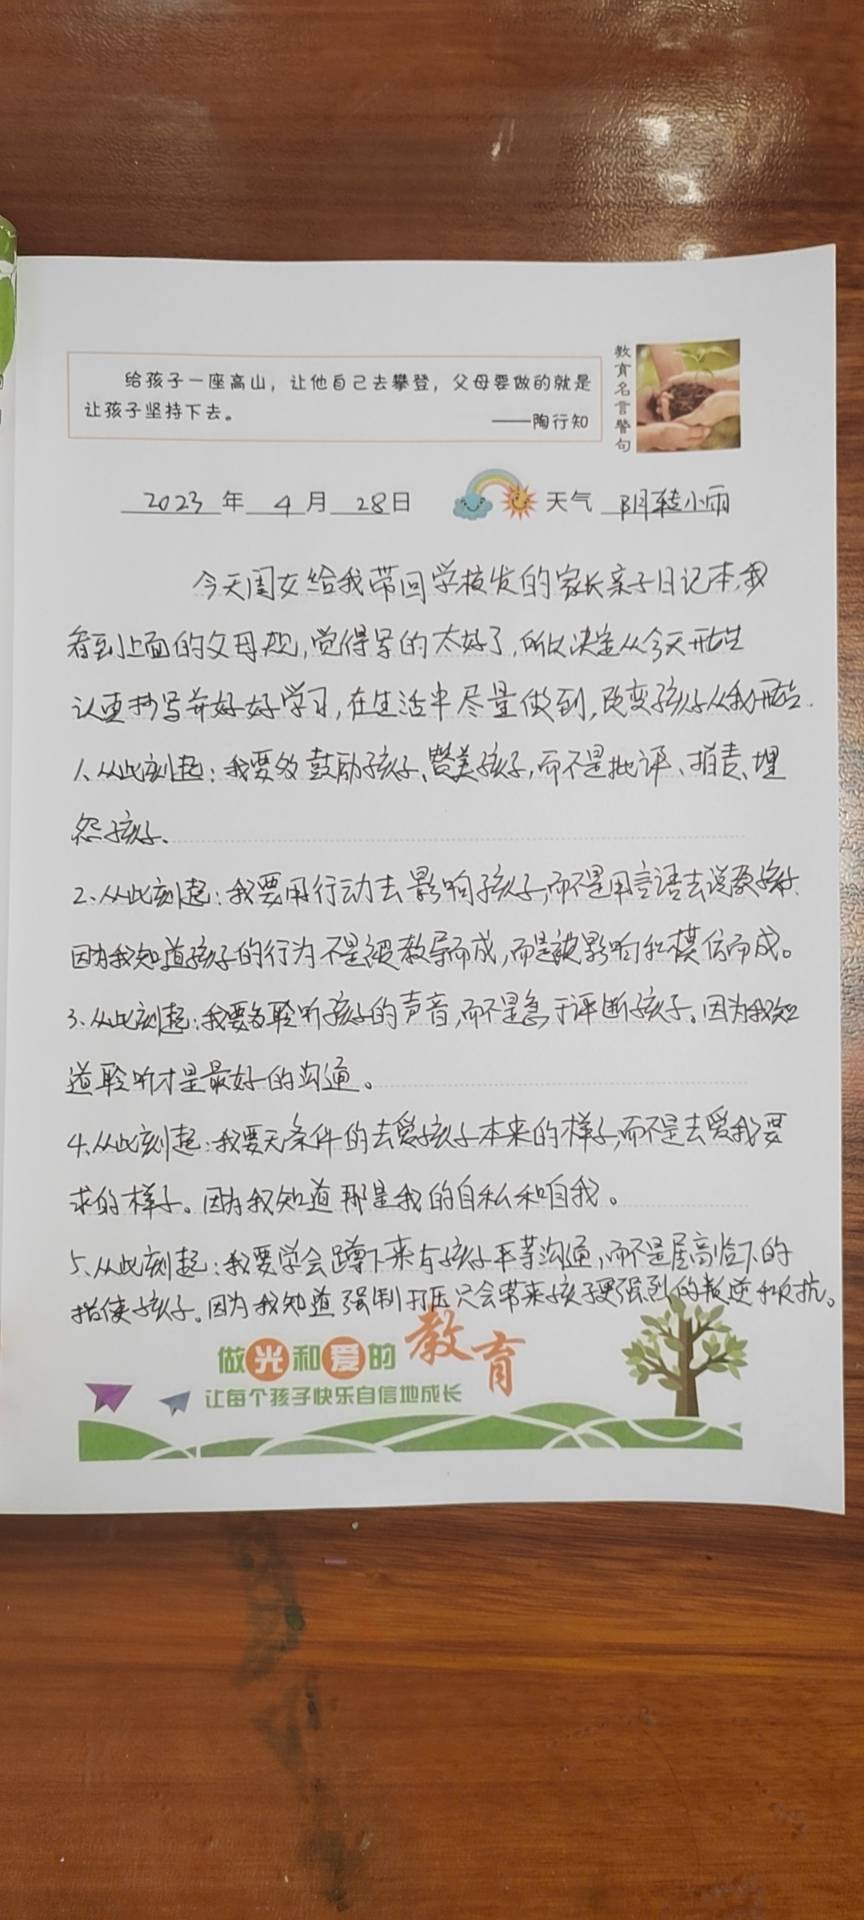 给孩子一座高山，让他自己去攀登，父母要做的就是
让孩子坚持下去。
——陶行知
教育名言警句
2023年4月28日 天气 阴转小雨
今天闺女给我带回学校发的家长亲子日记本,我
看到上面的父母规,觉得写的太好了,所以决定从今天开始
认真抄写并好好学习,在生活中尽量做到,改变孩子从我开始.
1、从此刻起：我要多鼓励孩子、赞美孩子,而不是批评、指责、埋
怨孩子、
2、从此刻起：我要用行动去影响孩子,而不是用言语去说教孩子.
因为我知道孩子的行为不是被教导而成,而是被影响和模仿而成。
3、从此刻起：我要多聆听孩子的声音,而不是急于评断孩子。因为我知
道聆听才是最好的沟通。
4、从此刻起：我要无条件的去爱孩子本来的样子,而不是去爱我要
求的样子。因为我知道那是我的自私和自我。
5、从此刻起：我要学会蹲下来与孩子平等沟通,而不是居高临下的
指使孩子。因为我知道强制打压只会带来孩子更强烈的叛逆和反抗。
做光和爱的教育
让每个孩子快乐自信地成长